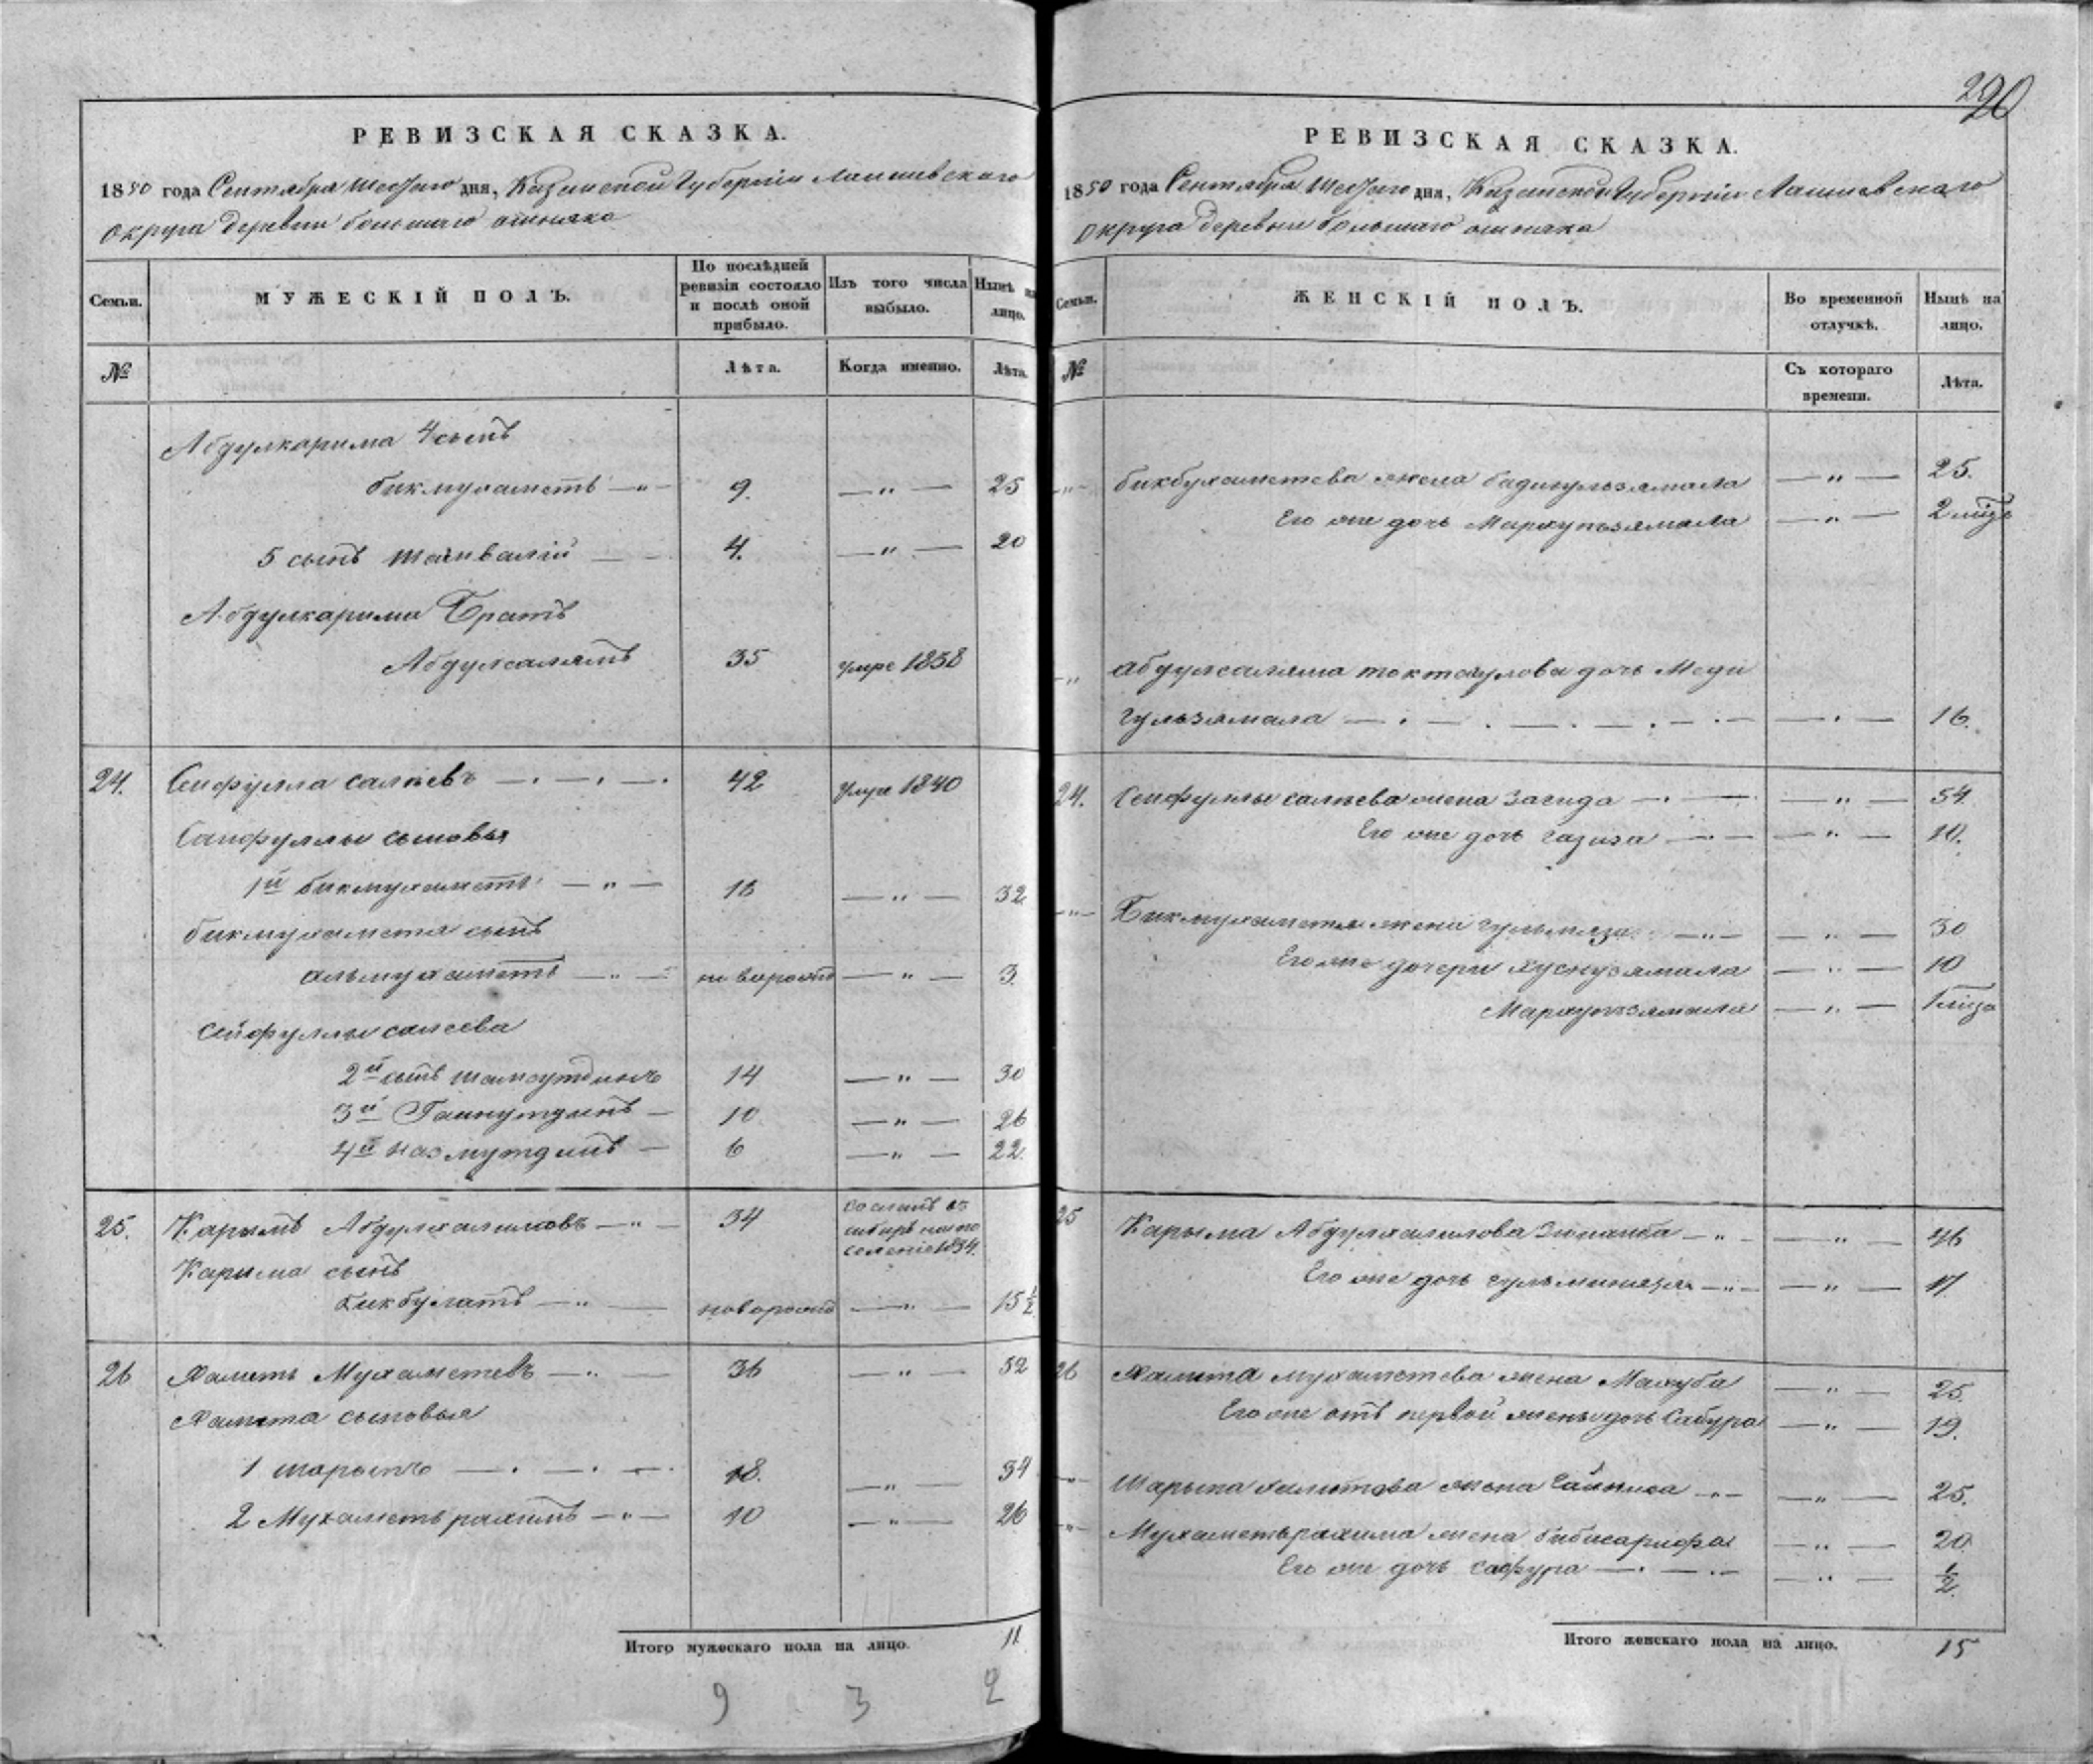 290
РЕВИЗСКАЯ СКАЗКА.
1850 года Сентября Шестаго дня, Казанской Губерніи Лаишевскаго
округа деревни большаго ошняка
Семьи.
МУЖЕСКІЙ ПОЛЪ.
По послѣдней ревизіи состояло и послѣ оной прибыло.
Изъ того числа выбыло.
Нынѣ на лицо.
№
Лѣта.
Когда именно.
Лѣта.
Абдулкарима 4 сынъ
бикмухаметъ — „ — 9. — „ — 25
5 сынъ шаивалій — 4. — „ — 20
Абдулкарима Братъ
Абдулсалямъ 35 умре 1838
24. Сейфулла салѣевъ — . — . — . 42 умре 1840
Сайфуллы сыновья
1й бикмухаметъ — „ — 16 — „ — 32
бикмухаметя сынъ
альмухаметъ — „ — новорожд — „ — 3
сейфуллы салеева
2й сынъ шамсутдинъ 14 — „ — 30
3й Гайнутдинъ — 10 — „ — 26
4й назмутдинъ — 6 — „ — 22
25. Карымъ Абдулхалиловъ — „ — 34 сосланъ въ
сибирь на
селеніе 1834.
Карима сынъ
бикбулатъ — „ — новорожд — „ — 15 ½
26 Халитъ Мухаметевъ — „ — 36 — „ — 52
Халита сыновья
1 шарыпъ — . — . — . 18. — „ — 34
2 Мухаметьрахимъ — „ — 10 — „ — 26
Итого мужескаго пола на лицо. 11
9 3 2
РЕВИЗСКАЯ СКАЗКА.
1850 года Сентября Шестаго дня, Казанской Губерніи Лаишевскаго
Округа деревни большаго ошняка
Семьи.
ЖЕНСКІЙ ПОЛЪ.
Во временной отлучкѣ.
Нынѣ на лицо.
№
Съ котораго времени.
Лѣта.
— „ — бикбухаметева жена бадигульзямала — „ — 25.
Его же дочь Мархупзямала — „ — 2
— „ абдулсаляма токтагулова дочь Меди
гульзямала — . — . — . — . — — . — 16.
24. Сейфуллы салѣева жена Загида — . — — „ — 54
Его же дочь газиза — „ — — „ — 10.
— „ — Бикмухаметя жена гульмяза — „ — — „ — 30
Его же дочери хуснузямала — „ — 10
Мархупзямала — „ — 1
25 Карыма Абдулхалилова — „ — — „ — 46
Его же дочь гульминяза — „ — — „ — 17
26 Халита мухаметева жена Махуба — „ — 25.
Его же отъ первой жены дочь Сабура — „ — 19.
— „ — Шарыпа халитова жена Сайника — „ — — „ — 25.
— „ — Мухаметьрахима жена бибисарифа — „ — 20.
Его же дочь сафура — . — . — — „ — ½
Итого женскаго пола на лицо. 15